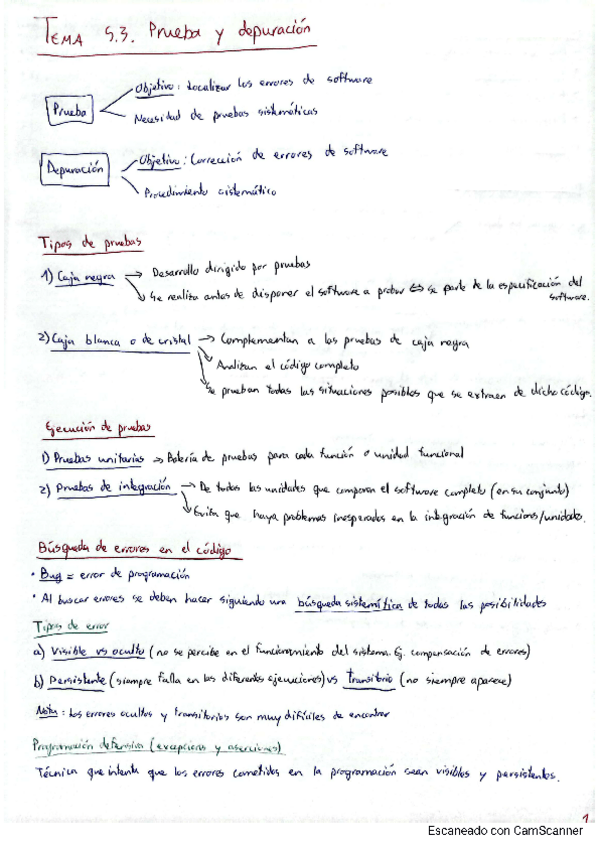 TEMA 5.3. Prueba y depuración
Prueba
Objetivo: Localizar los errores de software
Necesidad de pruebas sistemáticas
Depuración
Objetivo: Corrección de errores de software
Procedimiento sistemático
Tipos de pruebas
1) Caja negra → Desarrollo dirigido por pruebas
Se realiza antes de disponer el software a probar ⇔ se parte de la especificación del
software.
2) Caja blanca o de cristal → Complementan a las pruebas de caja negra
Analizan el código completo
Se prueban todas las situaciones posibles que se extraen de dicho código.
Ejecución de pruebas
1) Pruebas unitarias → Batería de pruebas para cada función o unidad funcional
2) Pruebas de integración → De todas las unidades que componen el software completo (en su conjunto)
Evita que haya problemas inesperados en la integración de funciones/unidades.
Búsqueda de errores en el código
• Bug = error de programación
• Al buscar errores se deben hacer siguiendo una búsqueda sistemática de todas las posibilidades
Tipos de error
a) Visible vs oculto (no se percibe en el funcionamiento del sistema. Ej. compensación de errores)
b) Persistente (siempre falla en las diferentes ejecuciones) vs transitorio (no siempre aparece)
Nota: Los errores ocultos y transitorios son muy difíciles de encontrar
Programación defensiva (excepciones y aserciones)
Técnica que intenta que los errores cometidos en la programación sean visibles y persistentes.
1
Escaneado con CamScanner